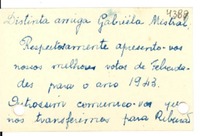 4389
Distinta amiga Gabriéla Mistral,
Respeitosamente apresento-vos
nossos melhores votos de felicida-
des para o ano 1943.
comunico-vos que
nos transferimos para Ribeirã